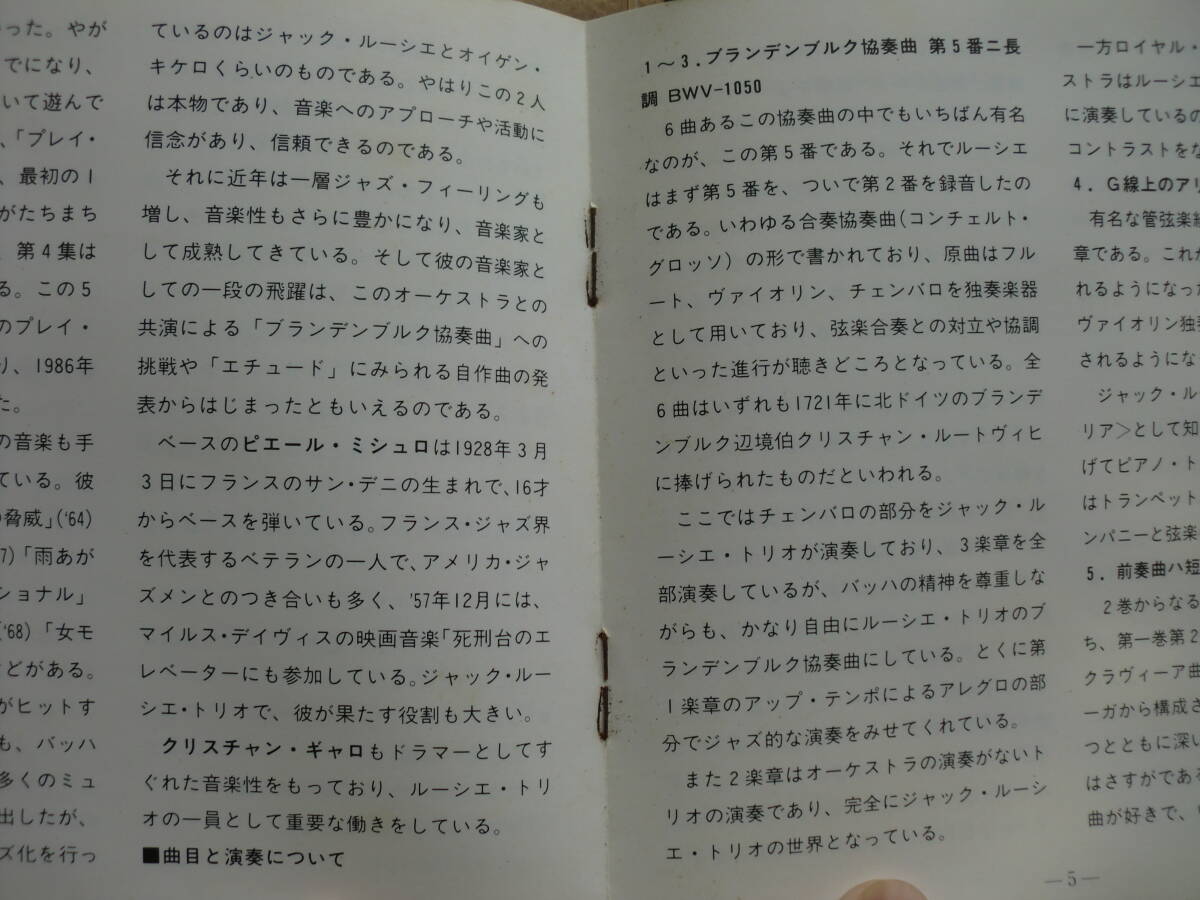 った。やが
でになり、
いて遊んで
、「プレイ・
、最初の1
がたちまち
、第4集は
る。この5
のプレイ・
り、1986年
た。
の音楽も手
ている。彼
の脅威」('64)
7)「雨あが
ショナル」
('68)「女モ
などがある。
がヒットす
も、バッハ
多くのミュ
出したが、
ズ化を行っ
ているのはジャック・ルーシエとオイゲン・
キケロくらいのものである。やはりこの2人
は本物であり、音楽へのアプローチや活動に
信念があり、信頼できるのである。
それに近年は一層ジャズ・フィーリングも
増し、音楽性もさらに豊かになり、音楽家と
して成熟してきている。そして彼の音楽家と
しての一段の飛躍は、このオーケストラとの
共演による「ブランデンブルク協奏曲」への
挑戦や「エチュード」にみられる自作曲の発
表からはじまったともいえるのである。
ベースのピエール・ミシュロは1928年3月
3日にフランスのサン・デニの生まれで、16才
からベースを弾いている。フランス・ジャズ界
を代表するベテランの一人で、アメリカ・ジャ
ズメンとのつき合いも多く、'57年12月には、
マイルス・デイヴィスの映画音楽「死刑台のエ
レベーターにも参加している。ジャック・ルー
シエ・トリオで、彼が果たす役割も大きい。
クリスチャン・ギャロもドラマーとしてす
ぐれた音楽性をもっており、ルーシエ・トリ
オの一員として重要な働きをしている。
■曲目と演奏について
1〜3.ブランデンブルク協奏曲 第5番ニ長
調 BWV-1050
6曲あるこの協奏曲の中でもいちばん有名
なのが、この第5番である。それでルーシエ
はまず第5番を、ついで第2番を録音したの
である。いわゆる合奏協奏曲(コンチェルト・
グロッソ)の形で書かれており、原曲はフル
ート、ヴァイオリン、チェンバロを独奏楽器
として用いており、弦楽合奏との対立や協調
といった進行が聴きどころとなっている。全
6曲はいずれも1721年に北ドイツのブランデ
ンブルク辺境伯クリスチャン・ルートヴィヒ
に捧げられたものだといわれる。
ここではチェンバロの部分をジャック・ル
ーシエ・トリオが演奏しており、3楽章を全
部演奏しているが、バッハの精神を尊重しな
がらも、かなり自由にルーシエ・トリオのブ
ランデンブルク協奏曲にしている。とくに第
1楽章のアップ・テンポによるアレグロの部
分でジャズ的な演奏をみせてくれている。
また2楽章はオーケストラの演奏がないト
リオの演奏であり、完全にジャック・ルーシ
エ・トリオの世界となっている。
一方ロイヤル・
ストラはルーシエ
に演奏しているの
コントラストをな
4.G線上のアリ
有名な管弦楽組
章である。これが
れるようになった
ヴァイオリン独奏
されるようにな
ジャック・ル
リア＞として知
げてピアノ・ト
はトランペット
ンパニーと弦楽
5.前奏曲ハ短
2巻からなる
ち、第一巻第2
クラヴィーア曲
ーガから構成さ
つとともに深い
はさすがである
曲が好きで、
—5—